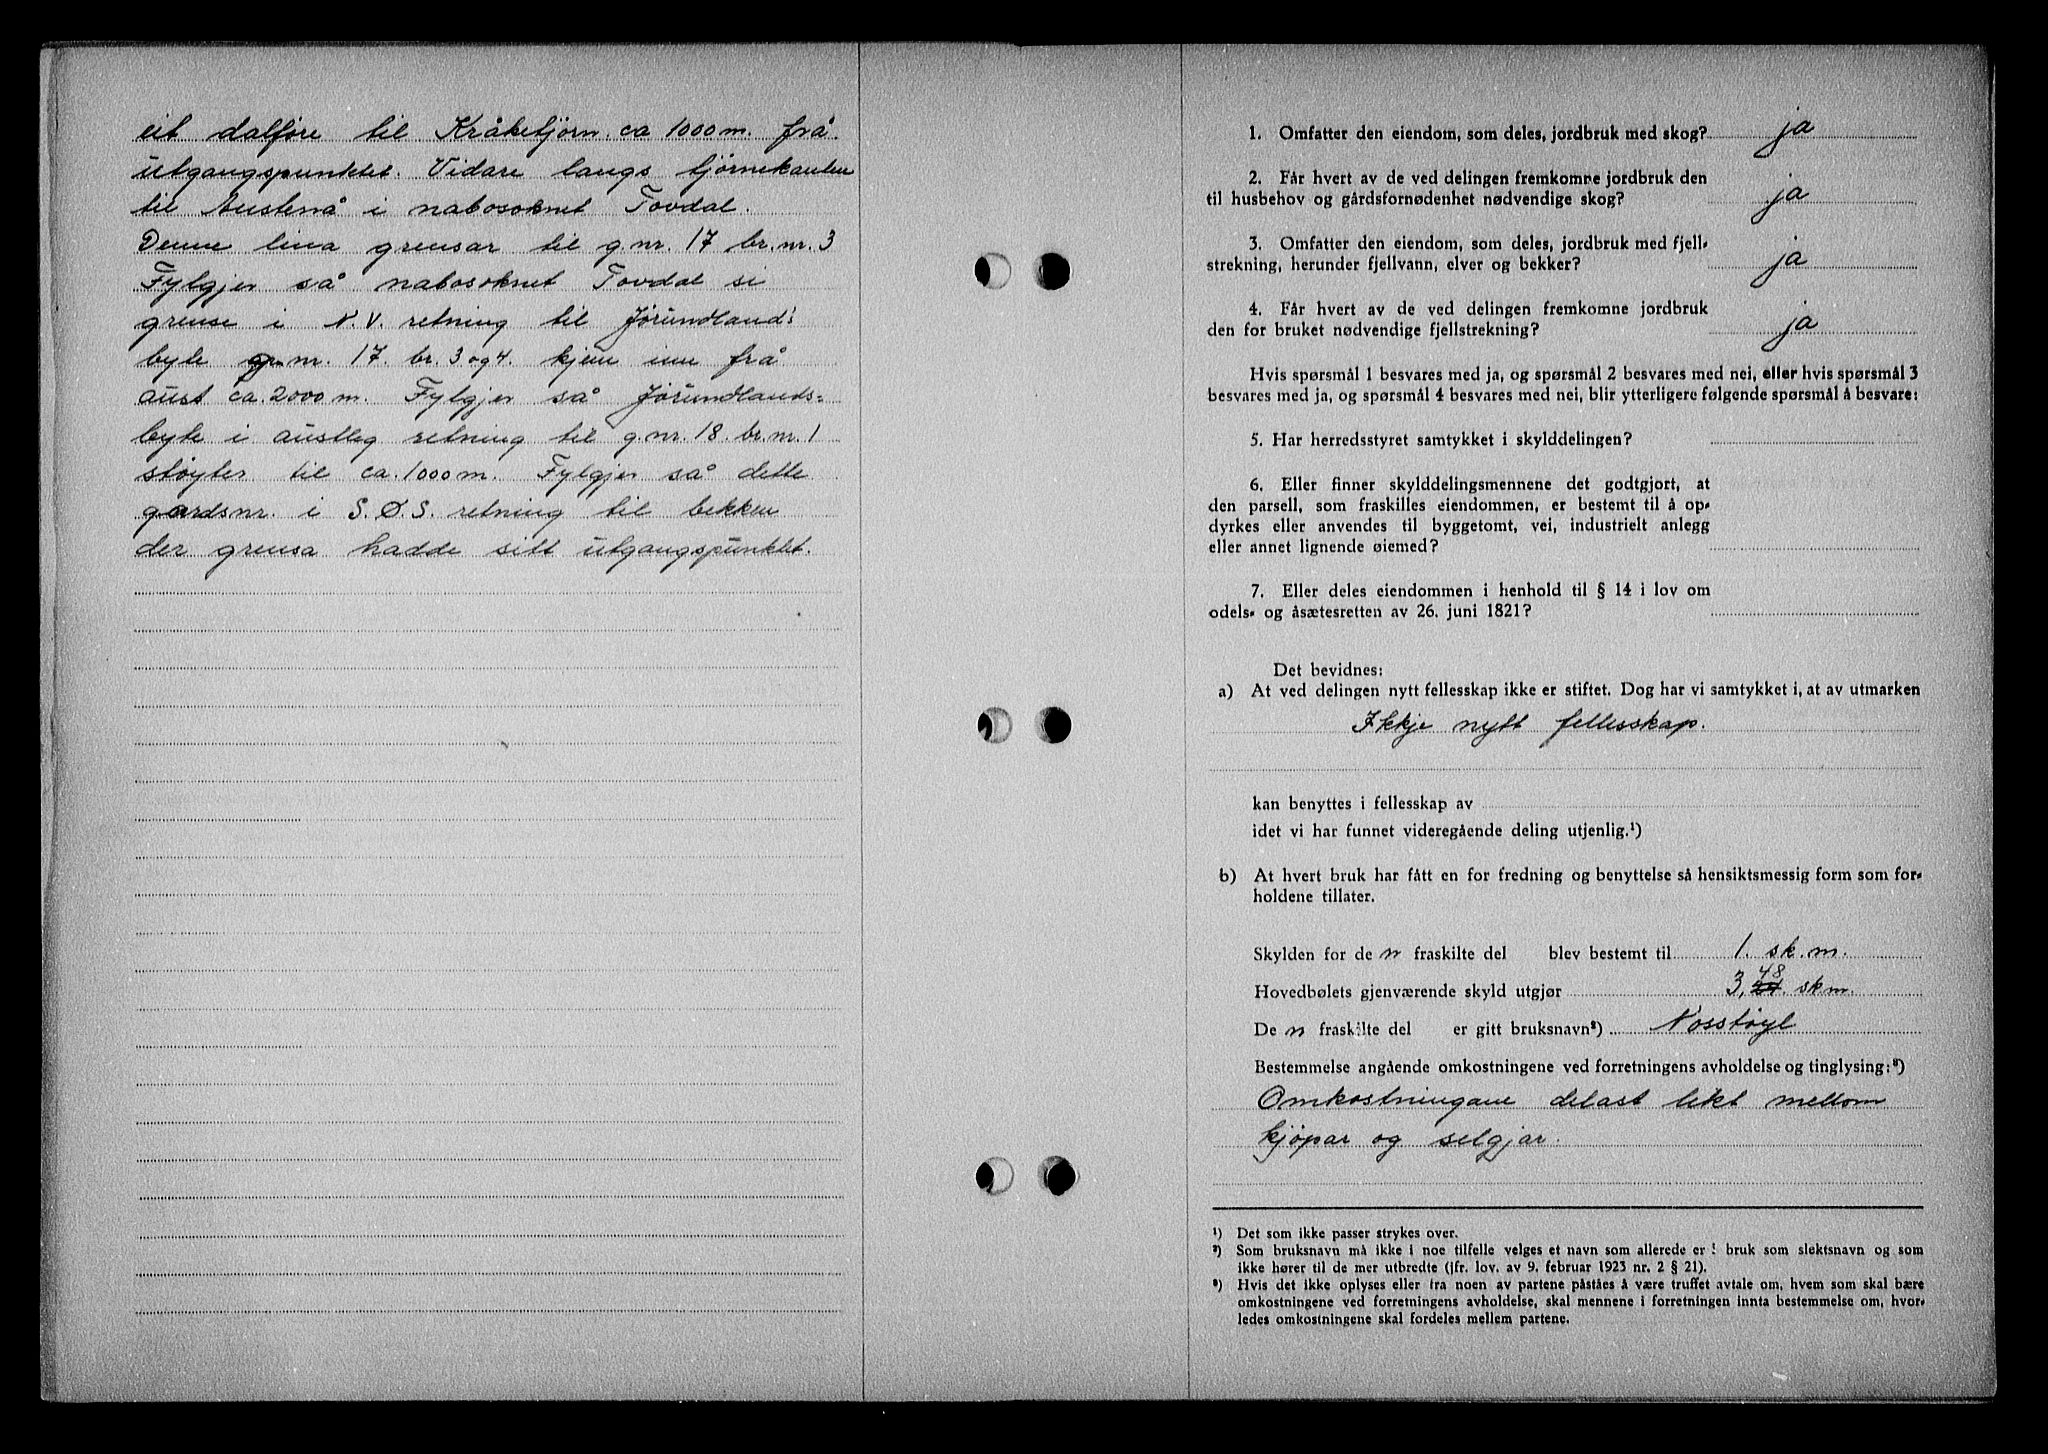 eit dalføre til Kråketjørn ca 1000 m. frå
utgangspunktet. Vidare langs tjørnekanten
til Austenå i nabosoknet Tovdal.
Denne lina grensar til g.nr. 17 br.nr. 3
Fylgjer så nabosoknet Tovdal si
grense i N.V. retning til Jørundland:
byte gr.nr. 17. br. 3 og 4. kjem inn frå
aust ca. 2000 m. Fylgjer så Jørundlands=
byte i austleg retning til g.nr. 18. br.nr. 1
støyter til ca. 1000 m. Fylgjer så dette
gardsnr. i S.Ø.S. retning til bekken
der grensa hadde sitt utgangspunktet.
1. Omfatter den eiendom, som deles, jordbruk med skog? ja
2. Får hvert av de ved delingen fremkomne jordbruk den
til husbehov og gårdsfornødenhet nødvendige skog? ja
3. Omfatter den eiendom, som deles, jordbruk med fjell-
strekning, herunder fjellvann, elver og bekker? ja
4. Får hvert av de ved delingen fremkomne jordbruk
den for bruket nødvendige fjellstrekning? ja
Hvis spørsmål 1 besvares med ja, og spørsmål 2 besvares med nei, eller hvis spørsmål 3
besvares med ja, og spørsmål 4 besvares med nei, blir ytterligere følgende spørsmål å besvare:
5. Har herredsstyret samtykket i skylddelingen?
6. Eller finner skylddelingsmennene det godtgjort, at
den parsell, som fraskilles eiendommen, er bestemt til å op-
dyrkes eller anvendes til byggetomt, vei, industrielt anlegg
eller annet lignende øiemed?
7. Eller deles eiendommen i henhold til § 14 i lov om
odels- og åsætesretten av 26. juni 1821?
Det bevidnes:
a) At ved delingen nytt fellesskap ikke er stiftet. Dog har vi samtykket i, at av utmarken
Ikkje nytt fellesskap.
kan benyttes i fellesskap av
idet vi har funnet videregående deling utjenlig.¹)
b) At hvert bruk har fått en for fredning og benyttelse så hensiktsmessig form som for-
holdene tillater.
Skylden for de n fraskilte del blev bestemt til 1. sk.m.
48
Hovedbølets gjenværende skyld utgjør 3, sk m.
De n fraskilte del er gitt bruksnavn²) Nosstøyl
Bestemmelse angående omkostningene ved forretningens avholdelse og tinglysing:³)
Omkostningane delast likt mellom
kjøpar og selgjar.
¹) Det som ikke passer strykes over.
²) Som bruksnavn må ikke i noe tilfelle velges et navn som allerede er i bruk som slektsnavn og som
ikke hører til de mer utbredte (jfr. lov. av 9. februar 1923 nr. 2 § 21).
³) Hvis det ikke oplyses eller fra noen av partene påståes å være truffet avtale om, hvem som skal bære
omkostningene ved forretningens avholdelse, skal mennene i forretningen innta bestemmelse om, hvor-
ledes omkostningene skal fordeles mellem partene.